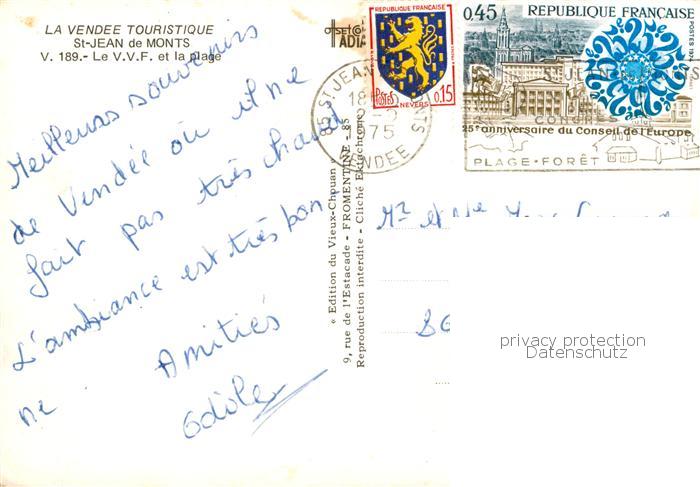 LA VENDEE TOURISTIQUE
St-JEAN de MONTS
V. 189.- Le V.V.F. et la plage
Meilleurs souvenirs
de Vendée où il ne
fait pas très chaud
L'ambiance est très bon
ne
Amitiés
Odile
« Edition du Vieux-Chouan »
9, rue de l'Estacade - FROMENTINE - 85
Reproduction interdite - Cliché Ektachrome
REPUBLIQUE FRANÇAISE
POSTES
0,15
NEVERS
0,45 REPUBLIQUE FRANÇAISE
POSTES 1974
25e anniversaire du Conseil de l'Europe
85 ST JEAN
18
1975
VENDEE
PLAGE - FORÊT
Mr et Me
privacy protection
Datenschutz